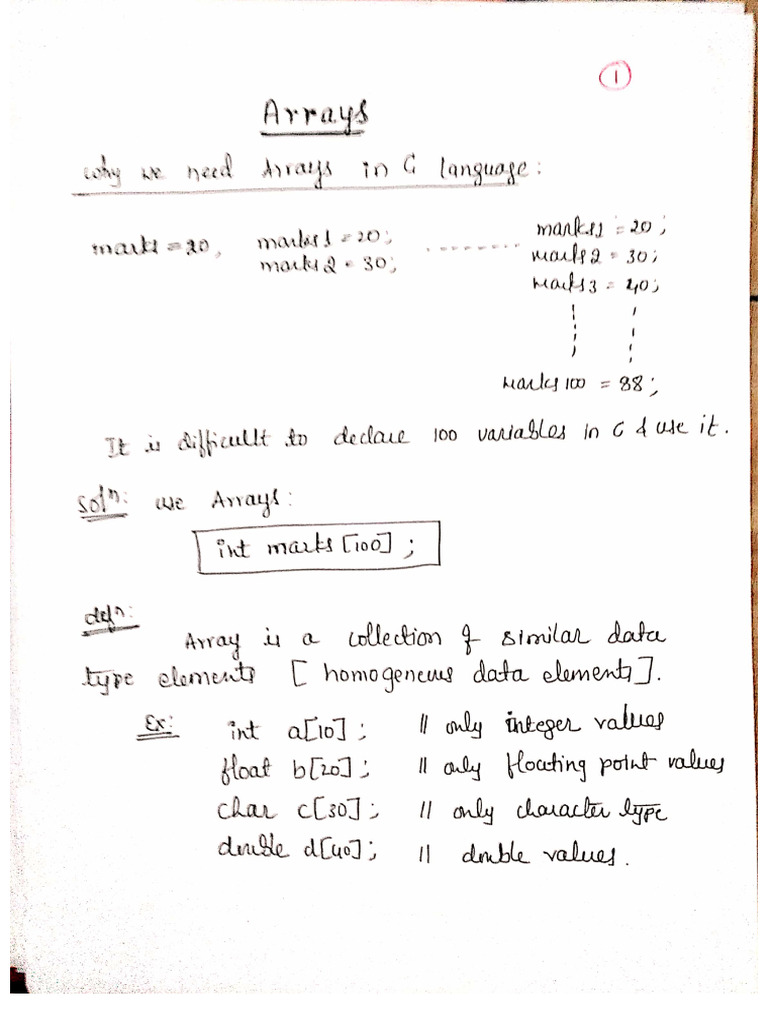 1
Arrays
Why we need Arrays in C language:
marks = 20, marks1 = 20; -------- marks1 = 20;
marks2 = 30; marks2 = 30;
marks3 = 40;
marks100 = 88;
It is difficult to declare 100 variables in C & use it.
Solⁿ: use Arrays:
int marks[100];
defⁿ:
Array is a collection of similar data
type elements [homogeneus data elements].
Ex: int a[10]; // only integer values
float b[20]; // only floating point values
char c[30]; // only character type
double d[40]; // double values.